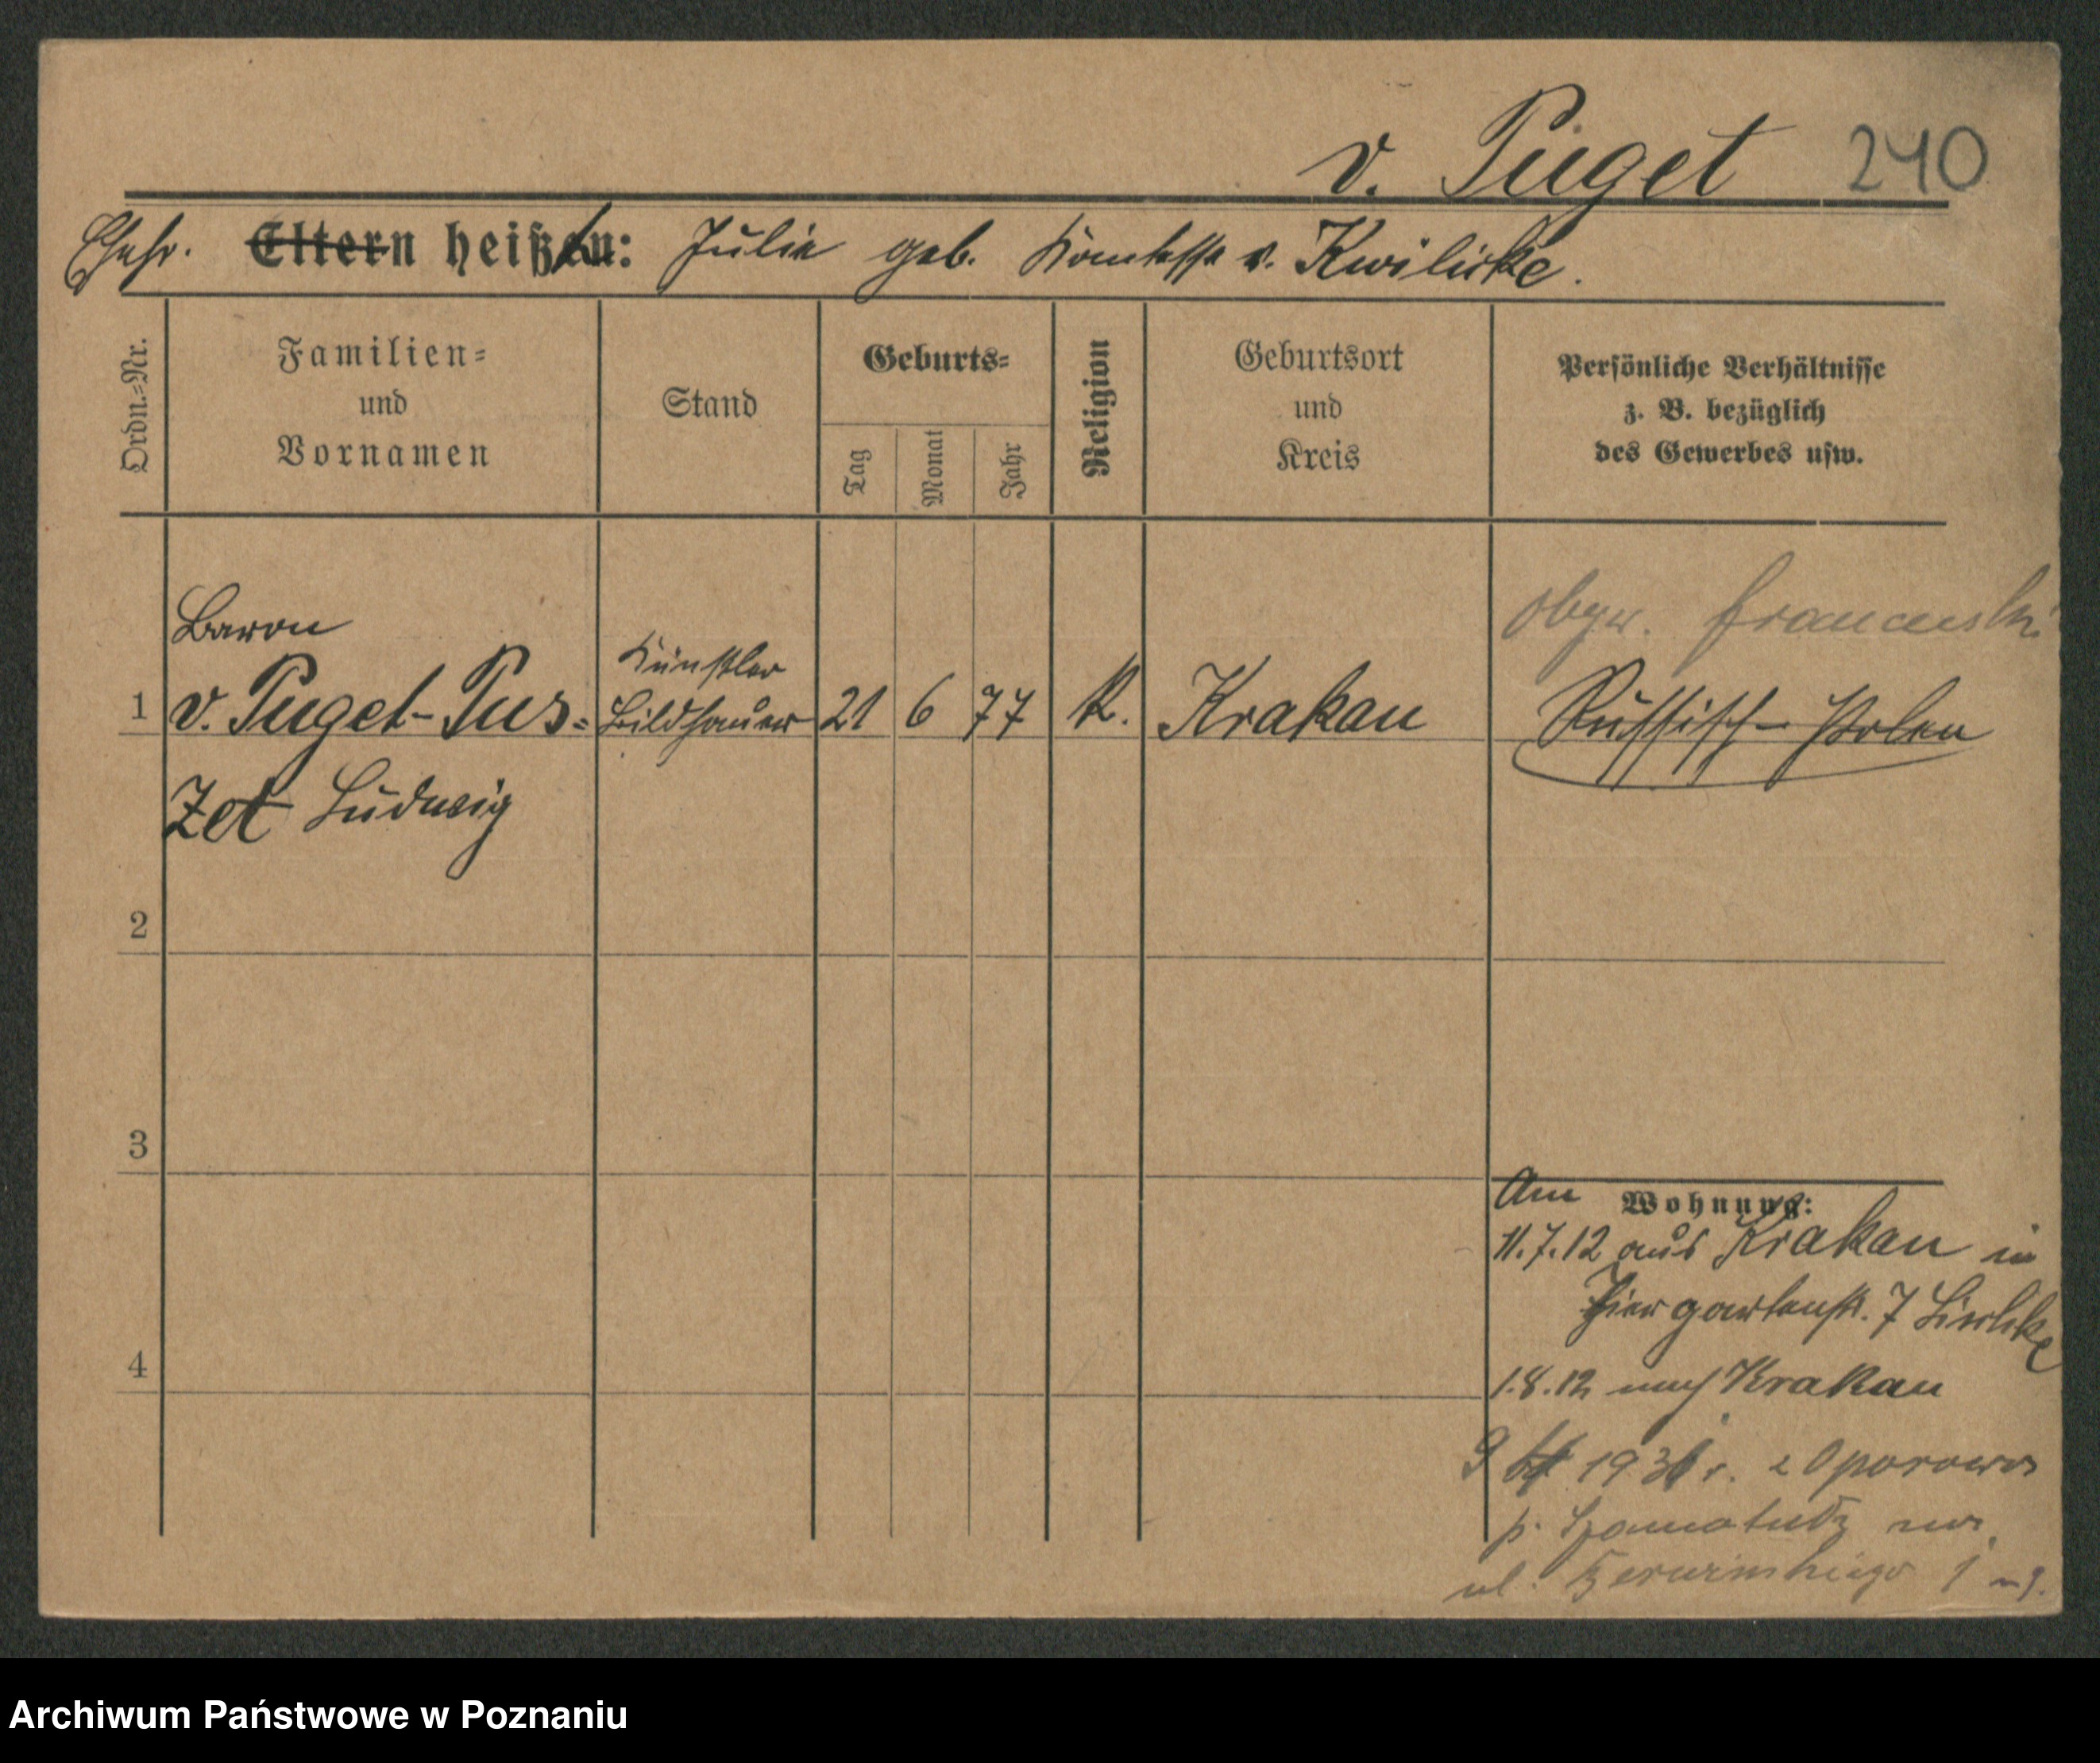 v. Puget 240
Ehefr. Eltern heißt: Julie geb. Komtesse v. Kwilicke.
Ordn.=Nr.
Familien=
und
Vornamen
Stand
Geburts=
Tag
Monat
Jahr
Religion
Geburtsort
und
Kreis
Persönliche Verhältnisse
z. B. bezüglich
des Gewerbes usw.
obyw. francuski
Baron
Künstler
1 v. Puget-Pus= Bildhauer 21 6 77 K. Krakau Russisch-Polen
Zet Ludwig
2
3
4
Am Wohnung:
11.7.12 aus Krakau in
Tiergartenstr. 7
1.8.12 nach Krakau
9 1931 r. z Oporowa
p. Szamotuły
ul. 1 m 9.
Archiwum Państwowe w Poznaniu